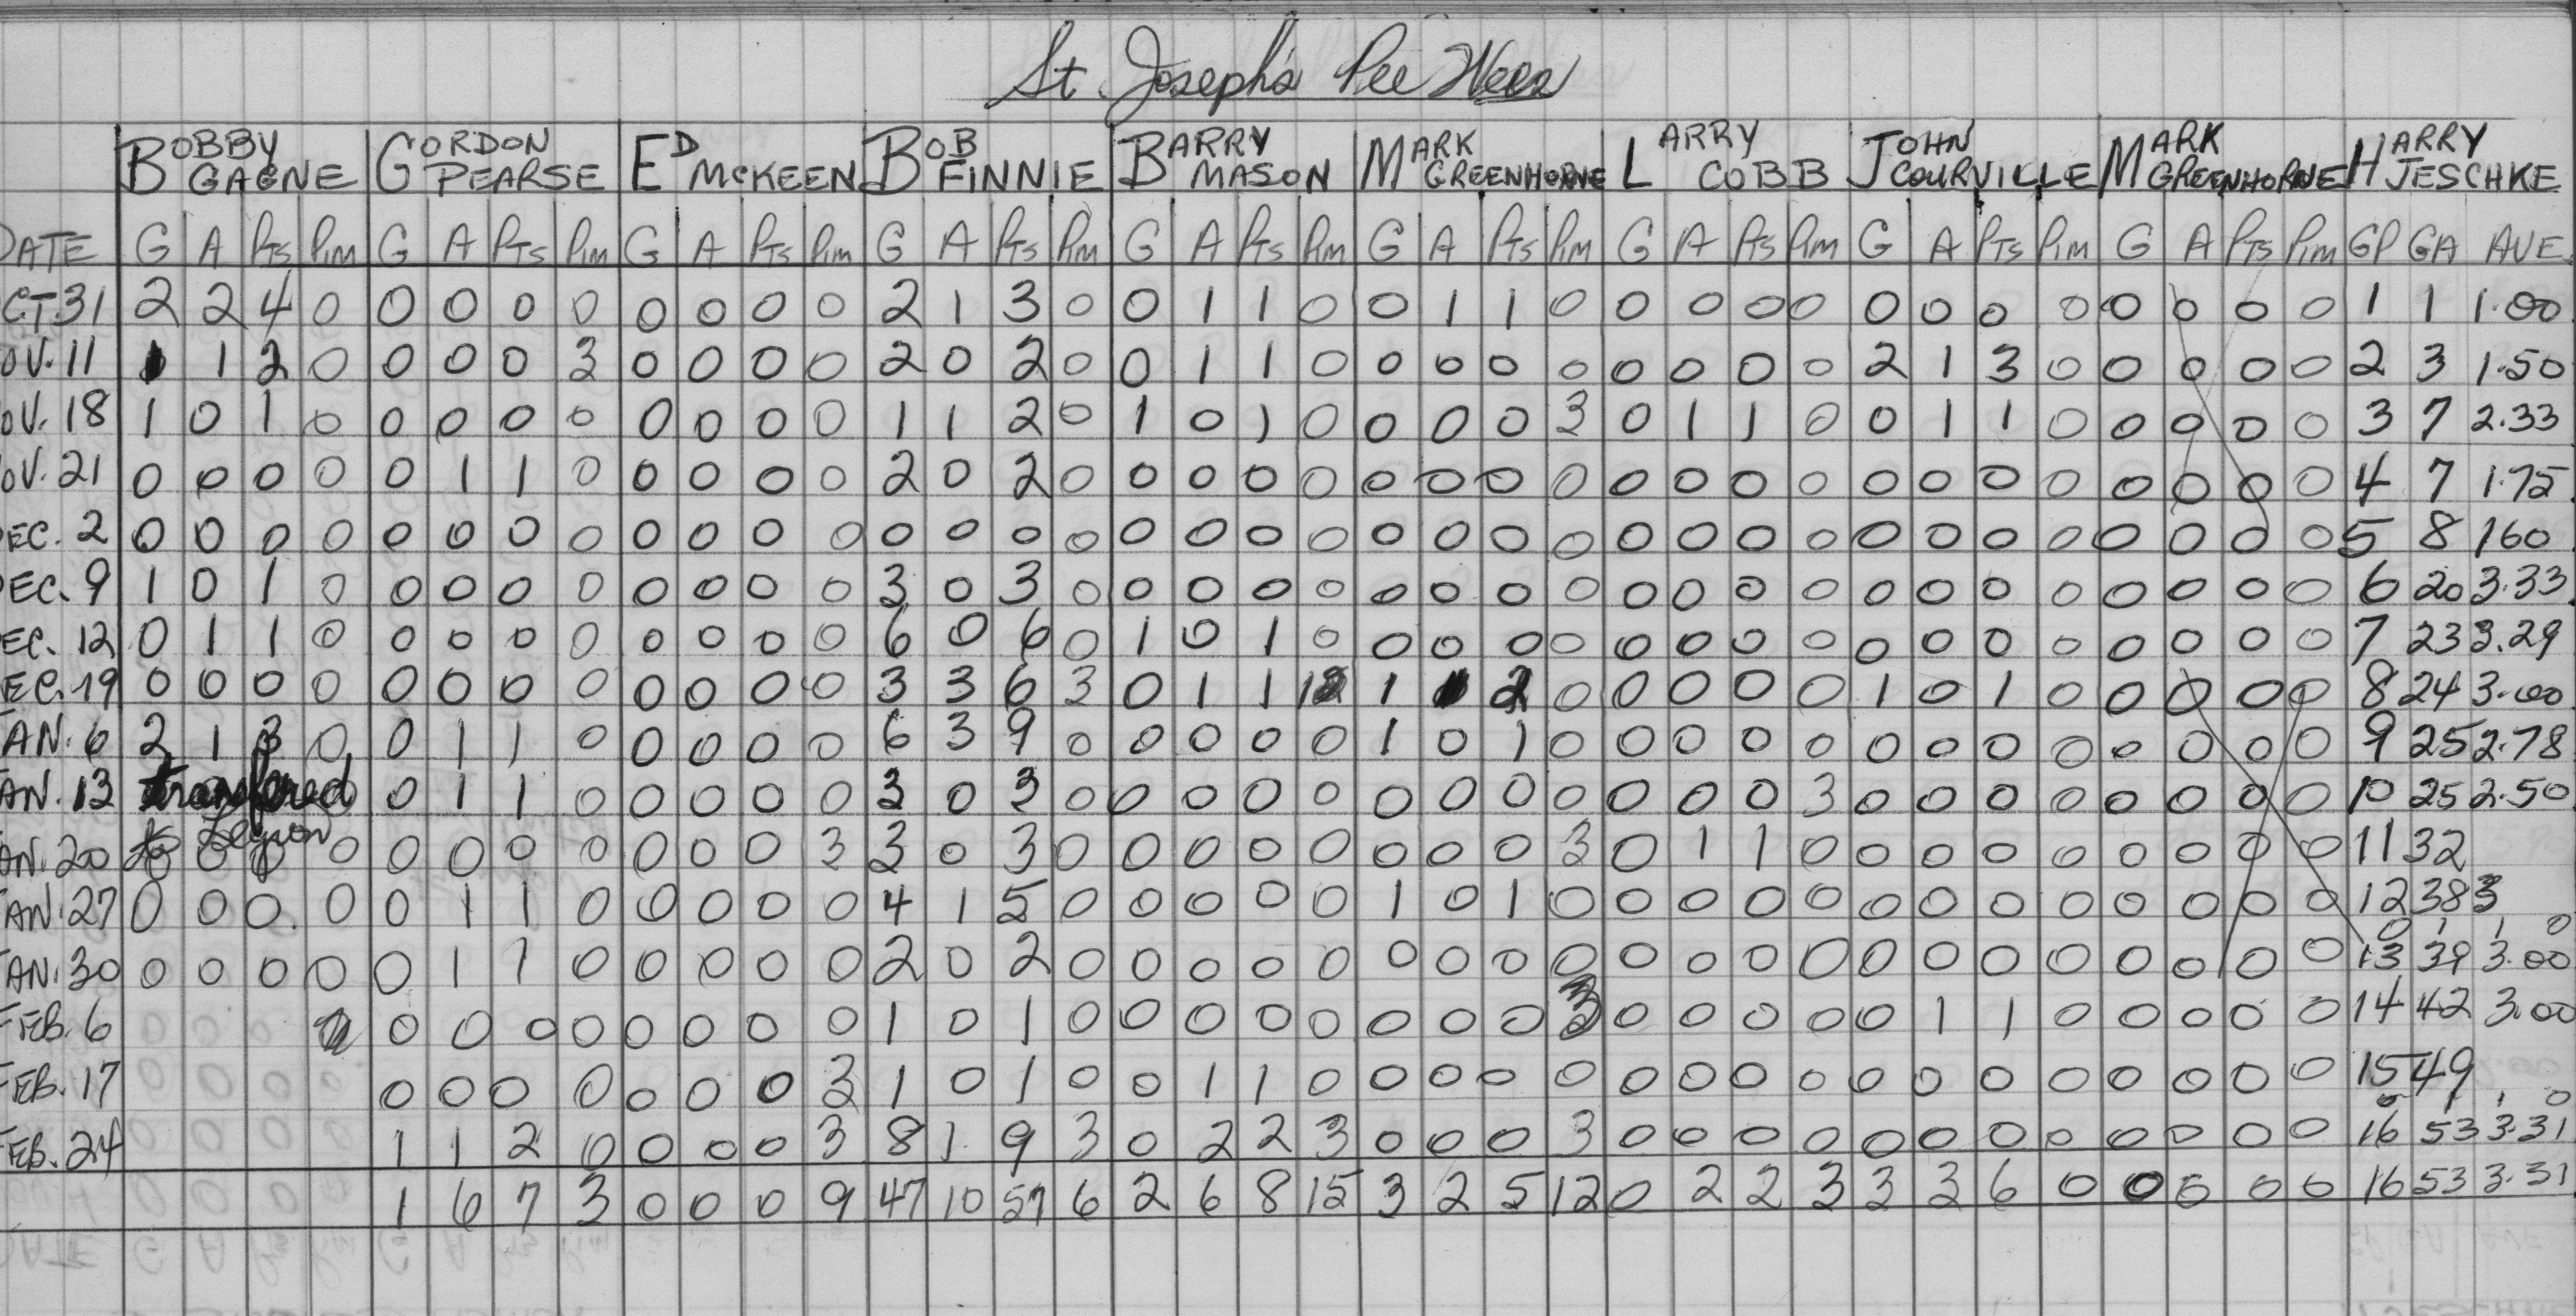 St. Joseph's Pee Wees
BOBBY GAGNE GORDON PEARSE ED MCKEEN BOB FINNIE BARRY MASON MARK GREENHORNE LARRY COBB JOHN COURVILLE MARK GREENHORNE HARRY JESCHKE
DATE G A PTS PIM G A PTS PIM G A PTS PIM G A PTS PIM G A PTS PIM G A PTS PIM G A PTS PIM G A PTS PIM G A PTS PIM GP GA AVE.
CT.31 2 2 4 0 0 0 0 0 0 0 0 0 2 1 3 0 0 1 1 0 0 1 1 0 0 0 0 0 0 0 0 0 0 0 0 0 1 1 1.00
OV. 11 1 1 2 0 0 0 0 3 0 0 0 0 2 0 2 0 0 1 1 0 0 0 0 0 0 0 0 0 2 1 3 0 0 0 0 0 2 3 1.50
OV. 18 1 0 1 0 0 0 0 0 0 0 0 0 1 1 2 0 1 0 1 0 0 0 0 3 0 1 1 0 0 1 1 0 0 0 0 0 3 7 2.33
OV. 21 0 0 0 0 0 1 1 0 0 0 0 0 2 0 2 0 0 0 0 0 0 0 0 0 0 0 0 0 0 0 0 0 0 0 0 0 4 7 1.75
EC. 2 0 0 0 0 0 0 0 0 0 0 0 0 0 0 0 0 0 0 0 0 0 0 0 0 0 0 0 0 0 0 0 0 0 0 0 0 5 8 160
EC. 9 1 0 1 0 0 0 0 0 0 0 0 0 3 0 3 0 0 0 0 0 0 0 0 0 0 0 0 0 0 0 0 0 0 0 0 0 6 20 3.33
EC. 12 0 1 1 0 0 0 0 0 0 0 0 0 6 0 6 0 1 0 1 0 0 0 0 0 0 0 0 0 0 0 0 0 0 0 0 0 7 23 3.29
EC. 19 0 0 0 0 0 0 0 0 0 0 0 0 3 3 6 3 0 1 1 12 1 1 2 0 0 0 0 0 1 0 1 0 0 0 0 0 8 24 3.00
AN. 6 2 1 3 0 0 1 1 0 0 0 0 0 6 3 9 0 0 0 0 0 1 0 1 0 0 0 0 0 0 0 0 0 0 0 0 0 9 25 2.78
AN. 13 transfered 0 1 1 0 0 0 0 0 3 0 3 0 0 0 0 0 0 0 0 0 0 0 0 3 0 0 0 0 0 0 0 0 10 25 2.50
to Legion
AN. 20 0 0 0 0 0 0 0 0 0 0 0 3 3 0 3 0 0 0 0 0 0 0 0 3 0 1 1 0 0 0 0 0 0 0 0 0 11 32
AN. 27 0 0 0 0 0 1 1 0 0 0 0 0 4 1 5 0 0 0 0 0 1 0 1 0 0 0 0 0 0 0 0 0 0 0 0 0 12 38 3
0 1 1 0
AN. 30 0 0 0 0 0 1 1 0 0 0 0 0 2 0 2 0 0 0 0 0 0 0 0 0 0 0 0 0 0 0 0 0 0 0 0 0 13 39 3.00
FEB. 6 0 0 0 0 0 0 0 0 1 0 1 0 0 0 0 0 0 0 0 3 0 0 0 0 0 1 1 0 0 0 0 0 14 42 3.00
FEB. 17 0 0 0 0 0 0 0 3 1 0 1 0 0 1 1 0 0 0 0 0 0 0 0 0 0 0 0 0 0 0 0 0 15 49
0 1 1 0
FEB. 24 1 1 2 0 0 0 0 3 8 1 9 3 0 2 2 3 0 0 0 3 0 0 0 0 0 0 0 0 0 0 0 0 16 53 3.31
1 6 7 3 0 0 0 9 47 10 57 6 2 6 8 15 3 2 5 12 0 2 2 3 3 3 6 0 0 0 0 0 16 53 3.31